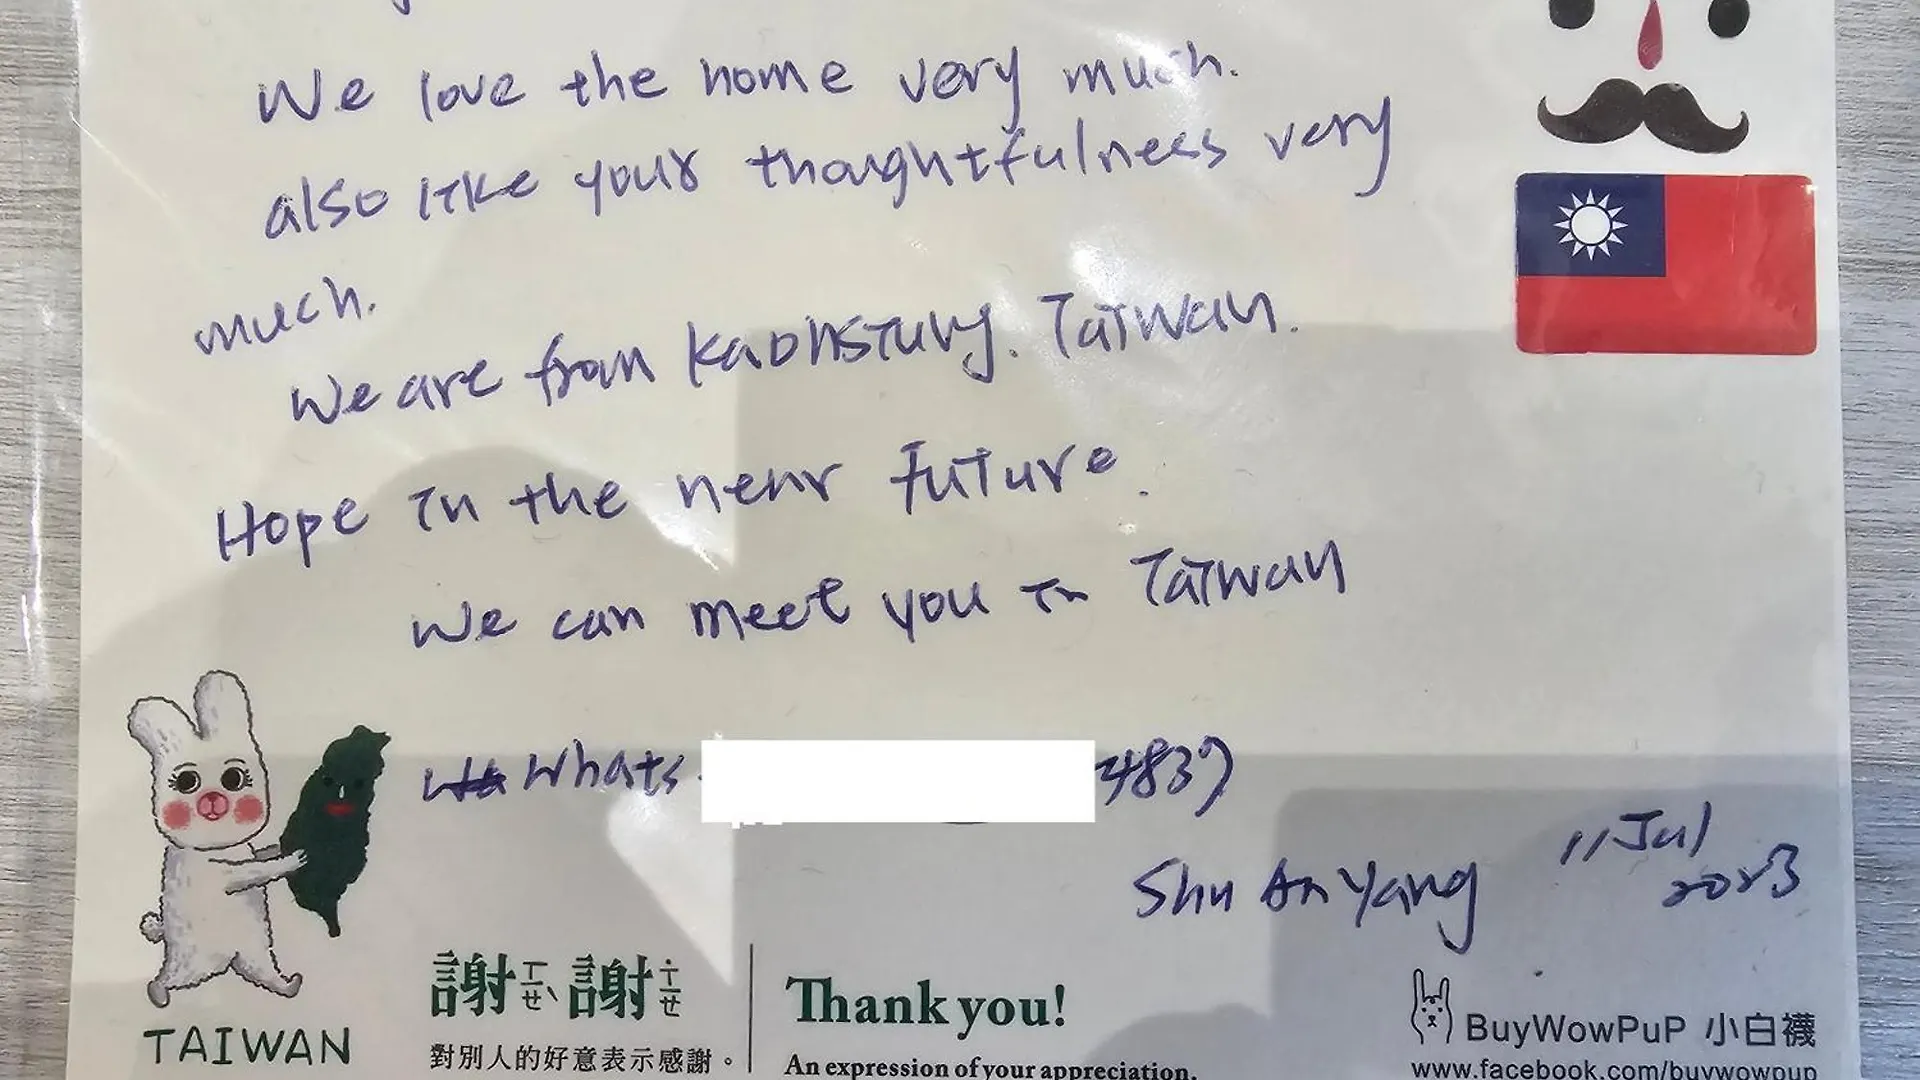 We love the home very much.
also like your thoughtfulness very
much.
We are from Kaohsiung. Taiwan.
Hope in the near future.
We can meet you in Taiwan
Whats 4839
Shu An Yang 11 Jul
2023
TAIWAN
謝ㄒㄧㄝˋ謝˙ㄒㄧㄝ
對別人的好意表示感謝。
Thank you!
An expression of your appreciation.
BuyWowPuP 小白襪
www.facebook.com/buywowpup